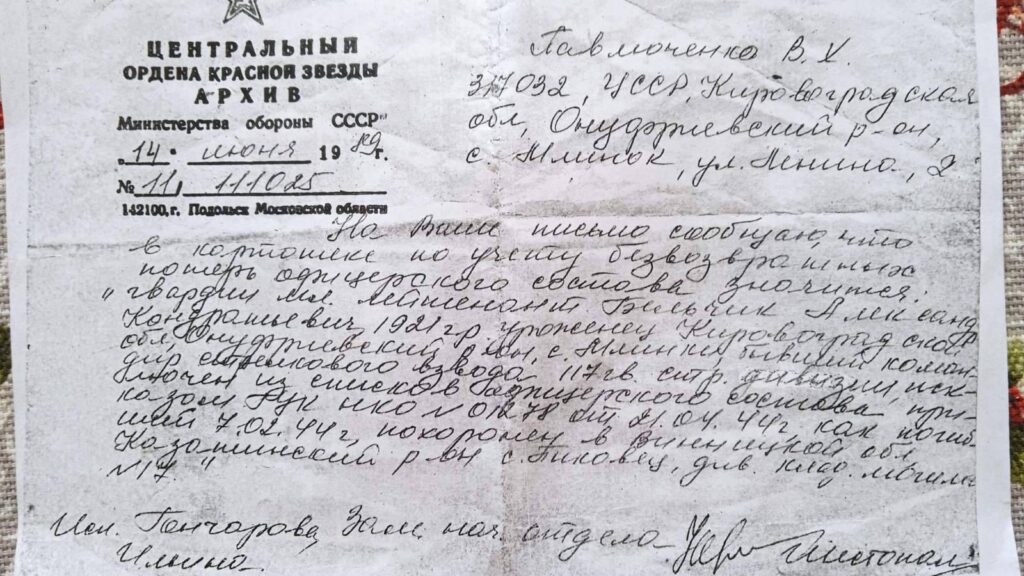 ЦЕНТРАЛЬНЫЙ
ОРДЕНА КРАСНОЙ ЗВЕЗДЫ
АРХИВ
Министерства обороны СССР
„14" июня 1989г.
№ 11/ 111025
142100, г. Подольск Московской области
Павлюченко В. Х.
317032, УССР, Кировоградская
обл, Онуфриевский р-он,
с. Млинок, ул. Ленина, 2
На Ваше письмо сообщаю, что
в картотеке по учету безвозвратных
потерь офицерского состава значится:
"гвардии мл. лейтенант Бильчик Александр
Кондратьевич, 1921 г.р. уроженец Кировоградской
обл, Онуфриевский р-он, с. Млинки бывший коман
дир стрелкового взвода 117 гв. стр. дивизии, иск-
лючен из списков офицерского состава при-
казом ГУК НКО № 01278 от 21.04.44г. как погиб
ший 7.02.44г, похоронен в Винницкой обл
Казатинский р-он с. Пиковец, див. клад. могила
№17."
Исп. Гончарова Зам. нач. отдела
Ильина